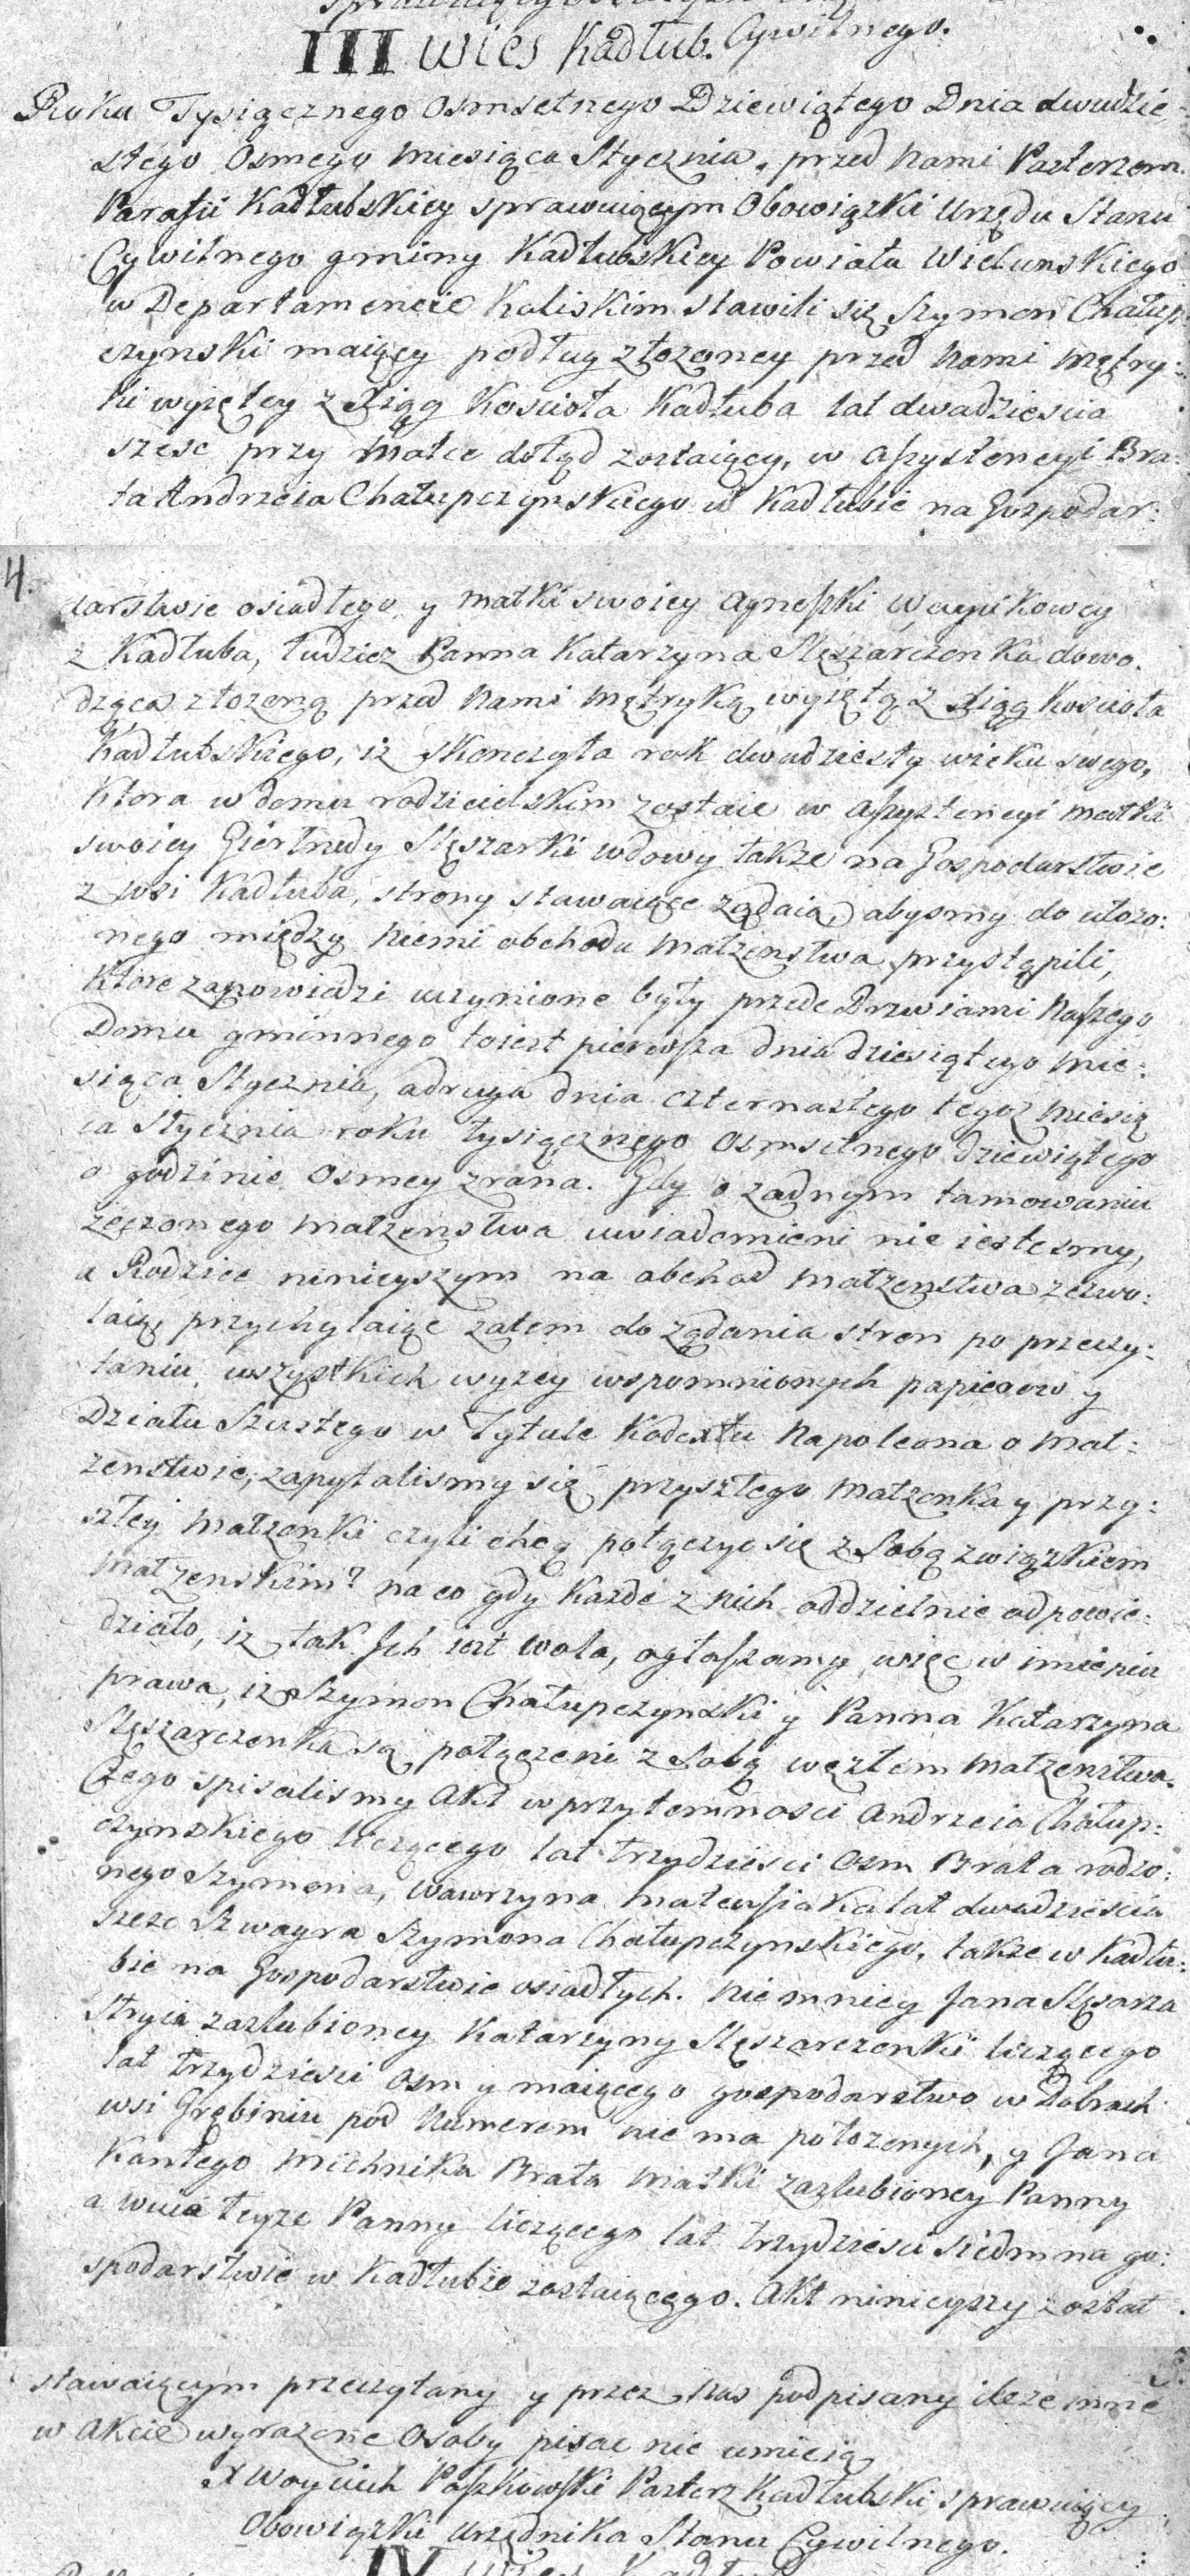 III wies Kadłub. Cywilnego.
Roku Tysiącznego Osmsetnego Dziewiątego Dnia dwudzie
stego Osmego Miesiąca Stycznia, przed Nami Pasterzem
Parafii Kadłubskiey sprawuiącym Obowiązki Urzędu Stanu
Cywilnego gminy Kadłubskiey Powiatu Wielunskiego
w Departamencie Kaliskim stawili się Szymon Chałup
czynski maiący podług złozoney przed Nami Mętry:
ki wyiętey z Xiąg Koscioła Kadłuba lat dwadziescia
szesc przy Matce dotąd zostaiący, w assystencyi Bra:
ta Andrzeia Chałupczynskiego w Kadłubie na Gospodar:
4.
darstwie osiadłego y Matki swoiey Agneszki
z Kadłuba, tudziez Panna Katarzyna Slęszarczonka dowo.
dząca złozoną przed Nami Mętryką wyiętą z Xiąg Koscioła
Kadłubskiego, iz skonczyła rok dwudziesty wieku swego,
Ktora w domu rodzicielskim zostaie w assystencyi Matki
swoiey Giertrudy Slęszarki wdowy takze na Gospodarstwie
z wsi Kadłuba, strony stawaiące ządaią abysmy do ułozo:
nego między niemi obchodu Małzenstwa przystąpili,
Ktore zapowiedzi uczynione były przede Drzwiami Naszego
Domu gminnego toiest pierwsza dnia dziesiątego Mie:
siąca Stycznia, a druga dnia czternastego tegoz Miesią
ca Stycznia roku tysiącznego osmsetnego dziewiątego
o godzinie Osmey zrana. Gdy o zadnym tamowaniu
rzeczonego Małzenstwa uwiadomieni nie iestesmy,
a Rodzice ninieyszym na obchod Małzenstwa zezwo:
laią, przychylaiąc zatem do ządania stron po przeczy:
taniu wszystkich wyzey wspomnionych papierow y
Działu Szostego w Tytule Kodextu Napoleona o Mał:
zenstwie, zapytalismy się przyszłego Małzonka y przy:
szłey Małzonki czyli chcą połączyc się z Sobą związkiem
Małzenskim? na co gdy Kazde z nich oddzielnie odpowie:
działo, iz tak Jch iest wola, ogłaszamy więc w imieniu
prawa, iz Szymon Chałupczynski y Panna Katarzyna
Slęszarczonka są połączeni z Sobą węzłem Małzenstwa.
Czego spisalismy Akt w przytomnosci Andrzeia Chałup:
czynskiego liczącego lat trzydziesci osm Brata rodzo:
nego Szymona, Wawrzyna Mateusiaka lat dwadziescia
szesc Szwagra Szymona Chałupczynskiego, takze w Kadłu:
bie na Gospodarstwie osiadłych. Niemniey Jana Slęsarza
Stryia zaslubioney Katarzyny Slęszarczonki liczącego
lat trzydziesci osm y maiącego gospodarstwo w Dobrach
wsi Grębiniu pod Numerem nie ma połozonych, y Jana
Kantego Michnika Brata Matki zaslubioney Panny
a wuia teyze Panny liczącego lat trzydziesci siedm na go:
spodarstwie w Kadłubie zostaiącego. Akt ninieyszy został
stawaiącym przeczytany y przez Nas podpisany ileze inne
w Akcie wyrazone Osoby pisac nie umieią
X Woyciech Paszkowski Pasterz Kadłubski sprawuiący
Obowiązki Urzędnika Stanu Cywilnego.
IV wies